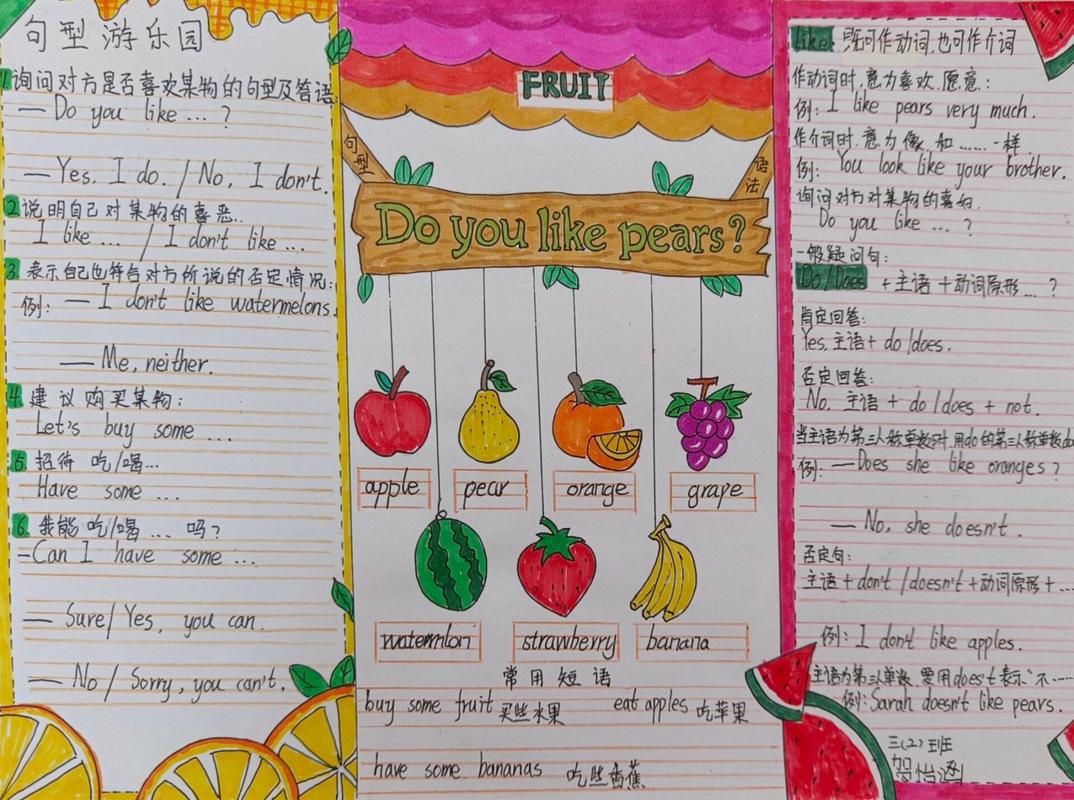 句型游乐园
1.询问对方是否喜欢某物的句型及答语
— Do you like ... ?
— Yes, I do. / No, I don't.
2.说明自己对某物的喜恶..
I like ... / I don't like ...
3.表示自己也符合对方所说的否定情况:
例: — I don't like watermelons.
— Me, neither.
4.建议购买某物:
Let's buy some ...
5.招待 吃/喝...
Have some ...
6.我能吃/喝 ... 吗?
-Can I have some ...
— Sure/ Yes, you can.
— No / Sorry, you can't.
FRUIT
句型
语法
Do you like pears?
apple pear orange grape
watermlon strawberry banana
常用短语
buy some fruit 买些水果 eat apples 吃苹果
have some bananas 吃些香蕉
like 既可作动词,也可作介词
作动词时,意为喜欢,愿意:
例: I like pears very much.
作介词时,意为像,和......一样
例: You look like your brother.
询问对方对某物的喜好.
Do you like ... ?
一般疑问句:
Do/Does +主语+动词原形... ?
肯定回答:
Yes, 主语+ do/does.
否定回答:
No, 主语 + do/does + not.
当主语为第三人称单数时,用do的第三人称单数do
例: —Does she like oranges?
— No, she doesn't.
否定句:
主语+don't /doesn't +动词原形+...
例: I don't like apples.
主语为第三人单数,要用does't表示"不......
例: Sarah doesn't like pears.
三(2)班
贺怡涵